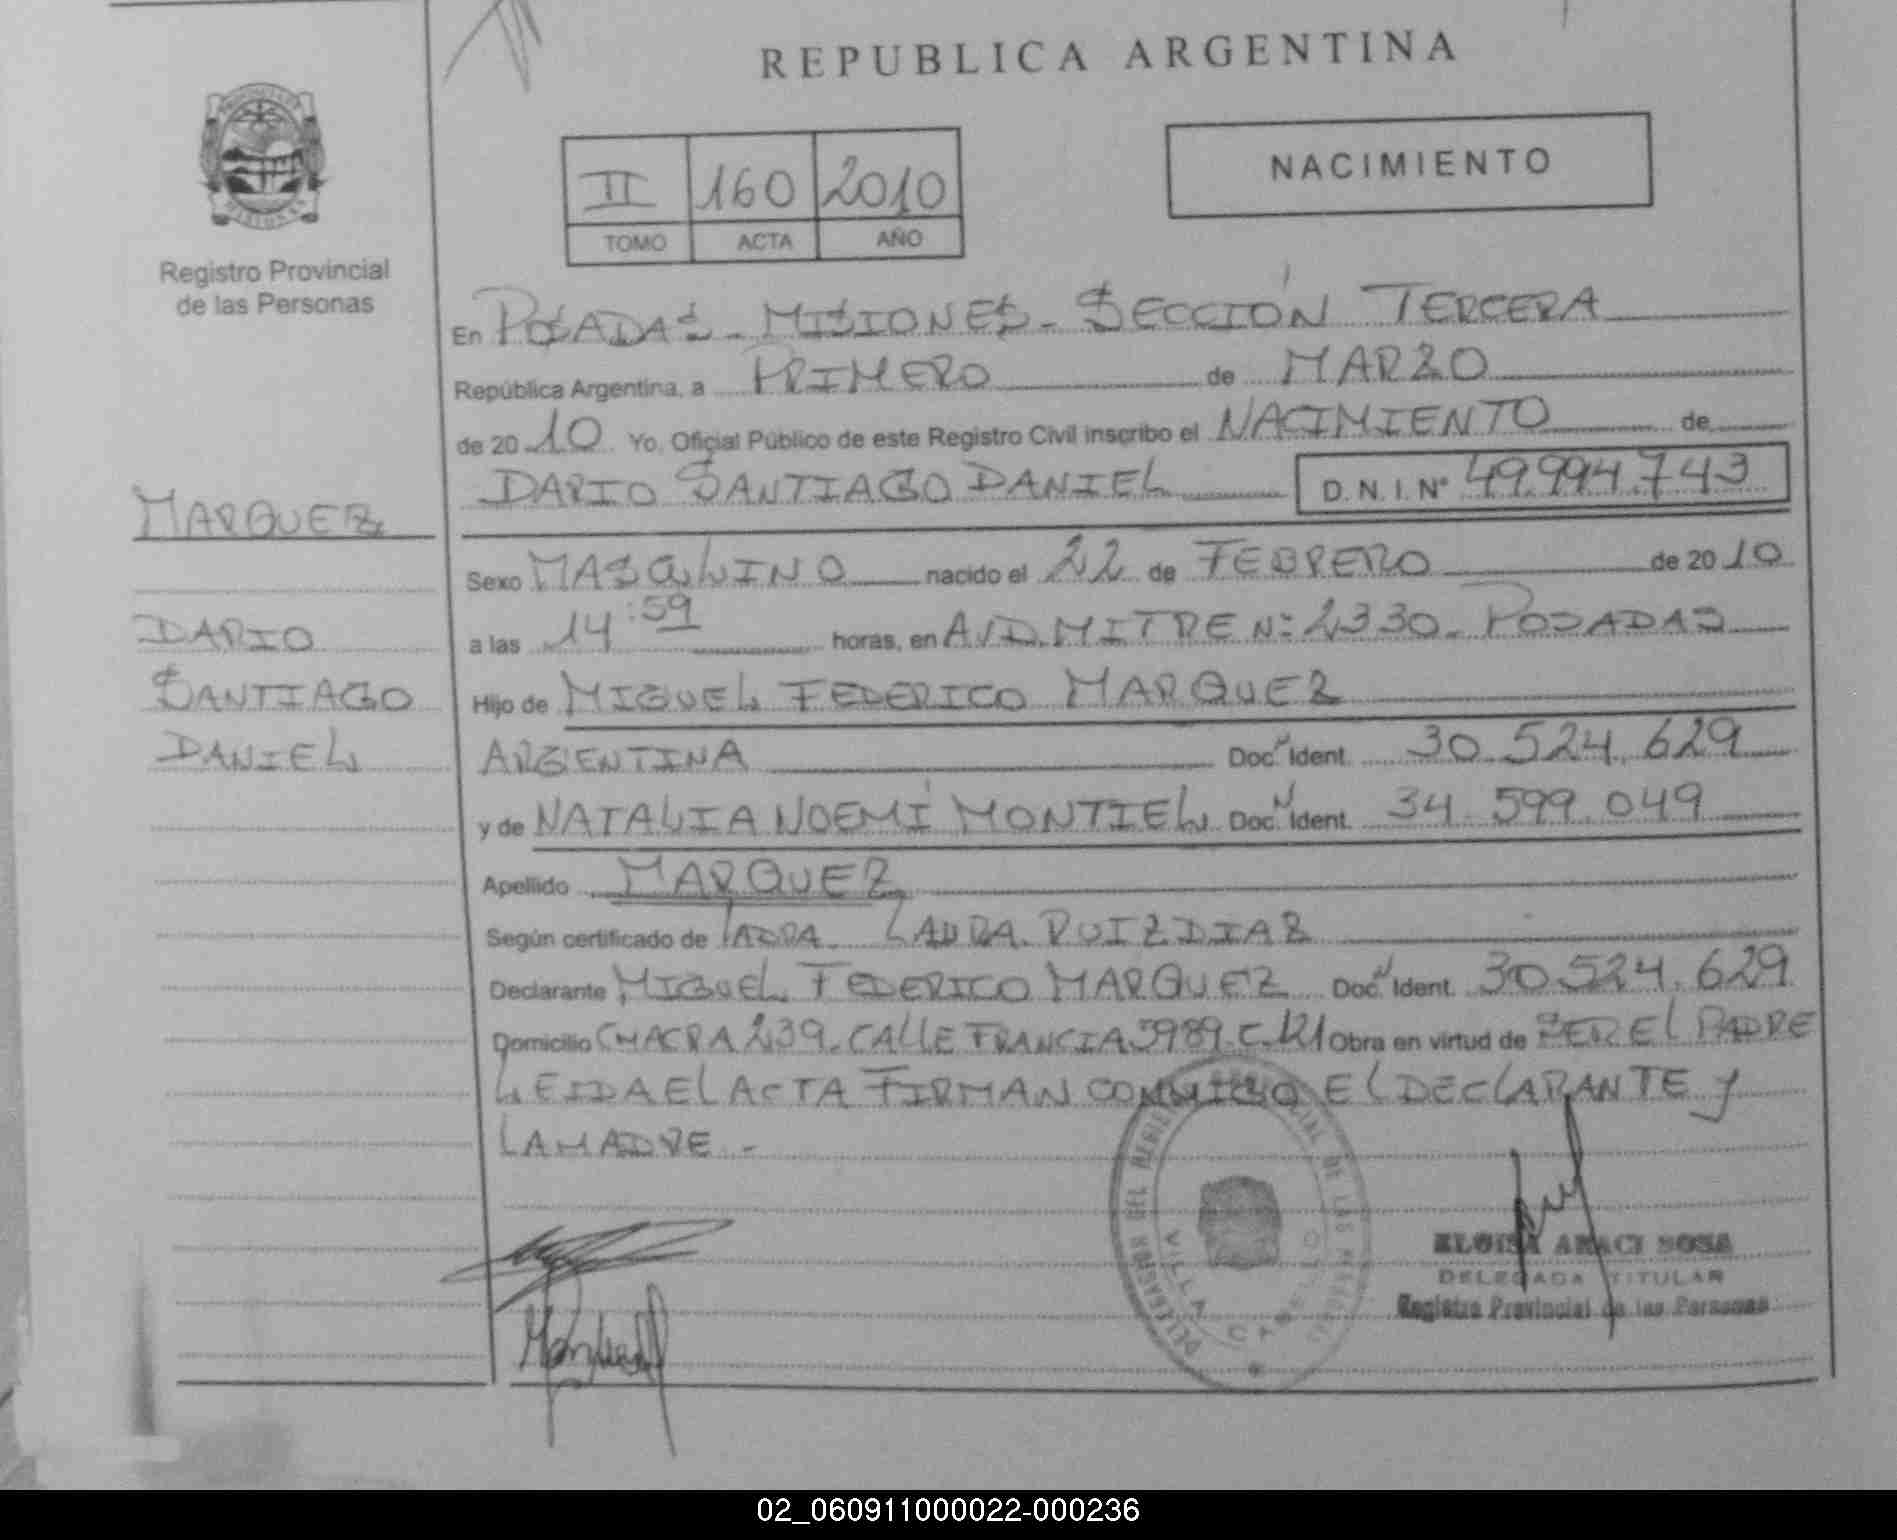 REPUBLICA ARGENTINA
NACIMIENTO
II 160 2010
TOMO ACTA AÑO
Registro Provincial
de las Personas
MARQUEZ
DARIO
SANTIAGO
DANIEL
En POSADAS - MISIONES - SECCIÓN TERCERA
República Argentina, a PRIMERO de MARZO
de 20 10 Yo, Oficial Público de este Registro Civil inscribo el NACIMIENTO de
DARIO SANTIAGO DANIEL D.N.I. Nº 49.994.743
Sexo MASCULINO nacido el 22 de FEBRERO de 20 10
a las 14:59 horas, en AVD. MITRE Nº: 2330 - POSADAS
Hijo de MIGUEL FEDERICO MARQUEZ
ARGENTINA Doc. Ident. 30.524.629
y de NATALIA NOEMÍ MONTIEL Doc. Ident. 34.599.049
Apellido MARQUEZ
Según certificado de LAURA RUIZ DIAZ
Declarante MIGUEL FEDERICO MARQUEZ Doc. Ident. 30.524.629
Domicilio CHACRA 239 - CALLE FRANCIA Obra en virtud de SER EL PADRE
LEIDA EL ACTA FIRMAN CONMIGO EL DECLARANTE y
LA MADRE -
DELEGACION DEL REGISTRO PROVINCIAL DE LAS PERSONAS
VILLA CABELLO
ELOISA ARACI SOSA
DELEGADA TITULAR
Registro Provincial de las Personas
02_060911000022-000236